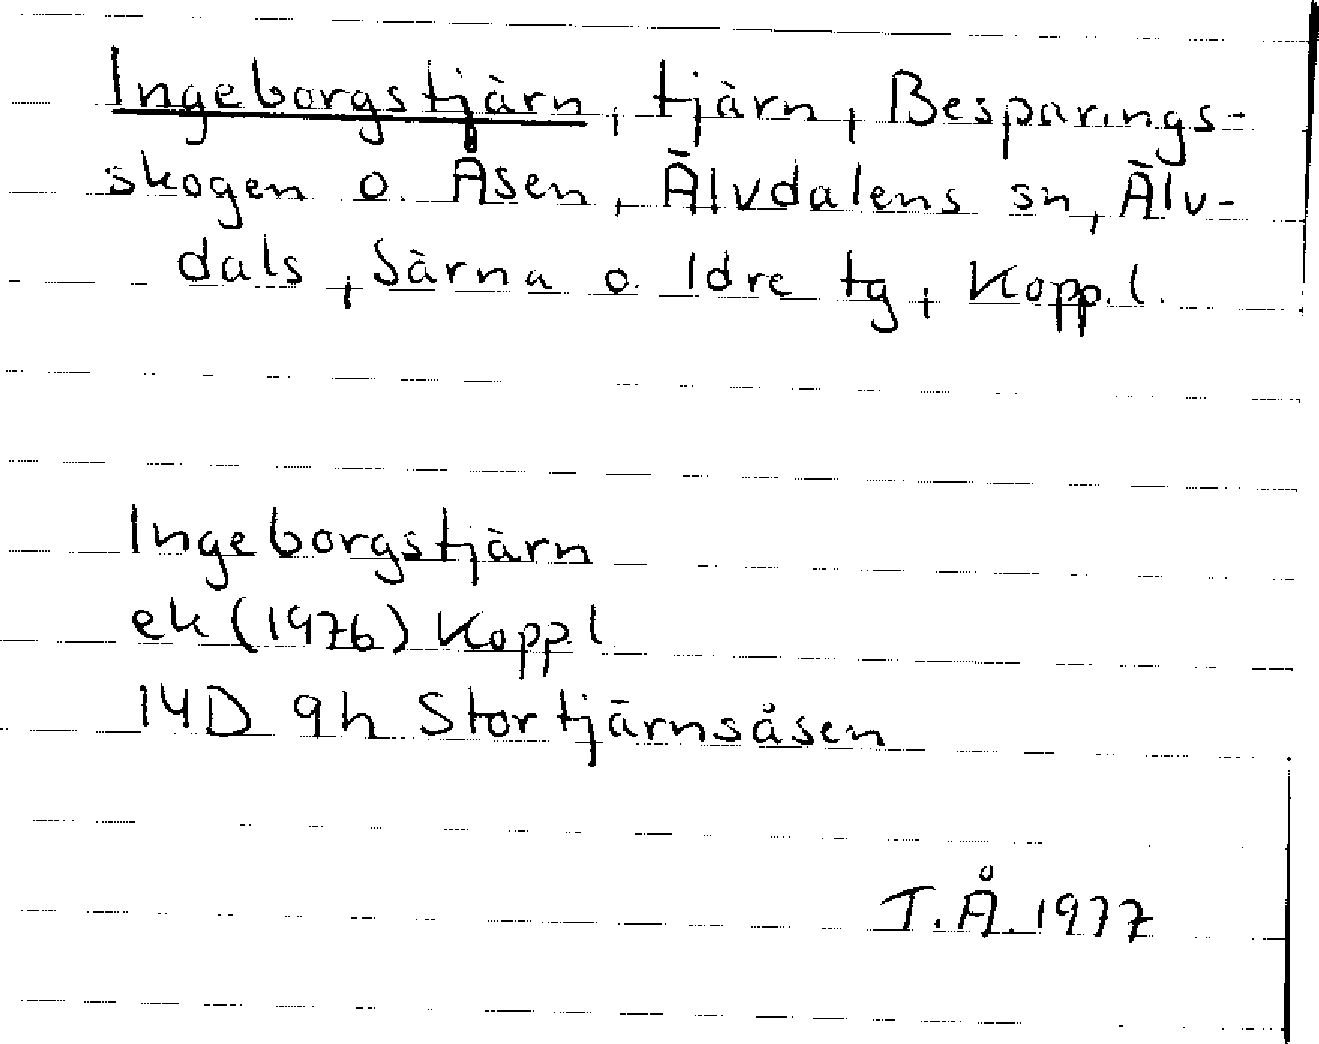 Ingeborgstjärn, tjärn, Besparings-
skogen o. Åsen, Älvdalens sn, Älv-
dals, Särna o. Idre tg, Kopp.l.
Ingeborgstjärn
ek (1976) Kopp.l
14D 9h Stortjärnsåsen
T.Å. 1977